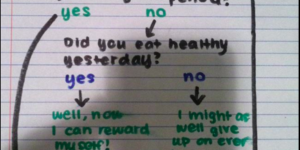 period?
yes no
Did you eat healthy
yesterday?
yes no
well, now I might as
I can reward well give
myself! up on ever